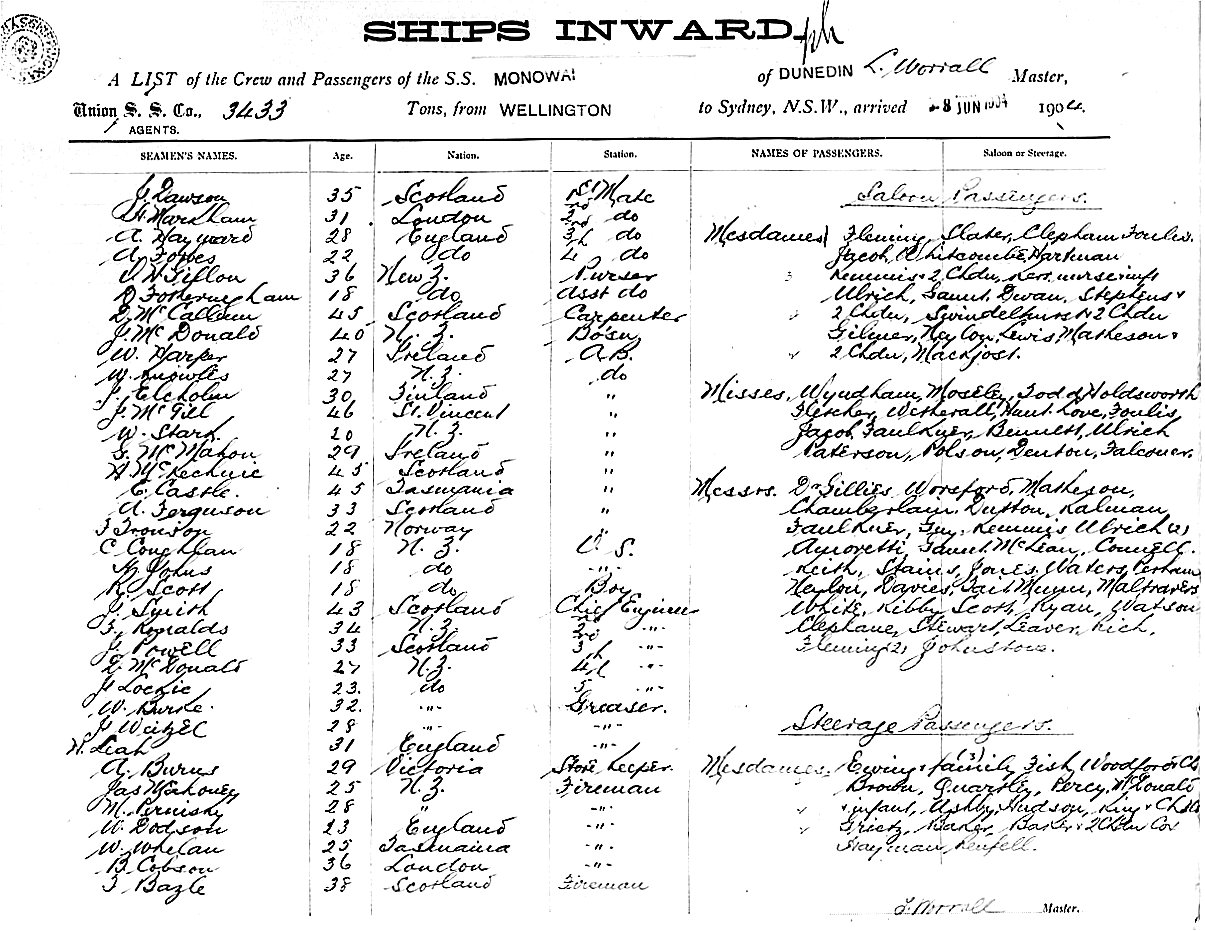 SHIPS INWARD.
A LIST of the Crew and Passengers of the S.S. MONOWAI of DUNEDIN L. Worrall Master,
Union S. S. Co., 3433 Tons, from WELLINGTON to Sydney, N.S.W., arrived 28 JUN 1904 1904.
AGENTS.
SEAMEN'S NAMES. Age. Nation. Station. NAMES OF PASSENGERS. Saloon or Steerage.
J. Dawson 35 Scotland 1st Mate
Saloon Passengers.
H. Markham 31 London 2nd do
A. Hayward 28 England 3rd do Mesdames Fleming, Slater, Clepham Foulis.
A. Forbes 22 do 4th do Jacob, Whitcombe, Harkman
36 New Z. Purser Kemmis & 2 Chdn, nurse inft
D Fotheringham 18 do asst do Ulrich, Gaunt, Dwan, Stephens &
D. McCallum 45 Scotland Carpenter 2 Chdn, Swindelhurst & 2 Chdn
J. McDonald 40 N. Z. Bosn Gilmer, Heylon, Lewis, Matheson &
W. Harper 27 Ireland A.B. 2 Chdn,
W. Knowles 27 N. Z. do
J. Ekholm 30 Finland " Misses, Wyndham, Moseley, Todd, Holdsworth
J. McGill 46 St. Vincent " Fletcher, Wetherall, Hunt, Love, Foulis
W. Stark 20 N. Z. " Jacob, Faulkner, Bennett, Ulrich
S. McMahon 29 Ireland " Paterson, Polson, Denton, Falconer.
H. McKechnie 45 Scotland "
C. Castle. 45 Tasmania " Messrs. Dr Gillies, Worsford, Matheson,
A. Ferguson 33 Scotland " Chamberlain, Dutton, Kalman
F Tronson 22 Norway " Faulkner, Guy, Kemmis Ulrich (2)
C Coughlan 18 N. Z. O. S. Amoretti, Gaunt, McLean, Connell.
Johns 18 do -"- Keith, Stains, Jones, Waters,
R. Scott 18 do Boy Heylon, Davies, Tait, Munn, Maltravers
J. Smith 43 Scotland Chief Engineer White, Kibby, Scott, Ryan, Watson
Ronalds 34 N. Z. 2nd -"- Clephane, Stewart, Leaver, Rich,
J. Powell 33 Scotland 3rd -"- Fleming (2), Johnstone.
D. McDonald 27 N. Z. 4th -"-
J Lockie 23. do 5 -"-
W. Burke. 32. -"- Greaser.
J Weitzel 28 -"-
Steerage Passengers.
H. Leah 31 England -"-
A. Burns 29 Victoria Store Keeper. Mesdames, Ewing & family (3), Fish, Woodford & Ch
Jas Mahoney 25 N. Z. Fireman Brown, Quartly, Percy, McDonald
M. 28 " -"- & infant, Ashby, Hudson, King & Chdn
W. Dodson 23 England -"- Grietz, Baker, Baker & 2 Chdn Cox
W. Whelan 25 Tasmania -"- Hayman Renfell.
B. Cobson 36 London -"-
Bazle 38 Scotland Fireman
L. Worrall Master.